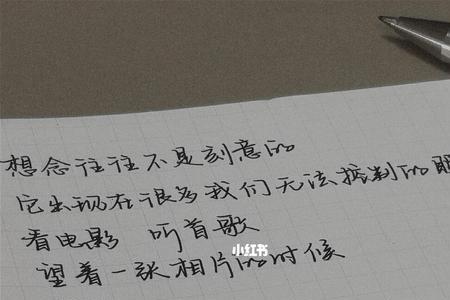 想念往往不是刻意的
它出现在很多我们无法控制的
看电影 听首歌
小红书
望着一张相片的时候